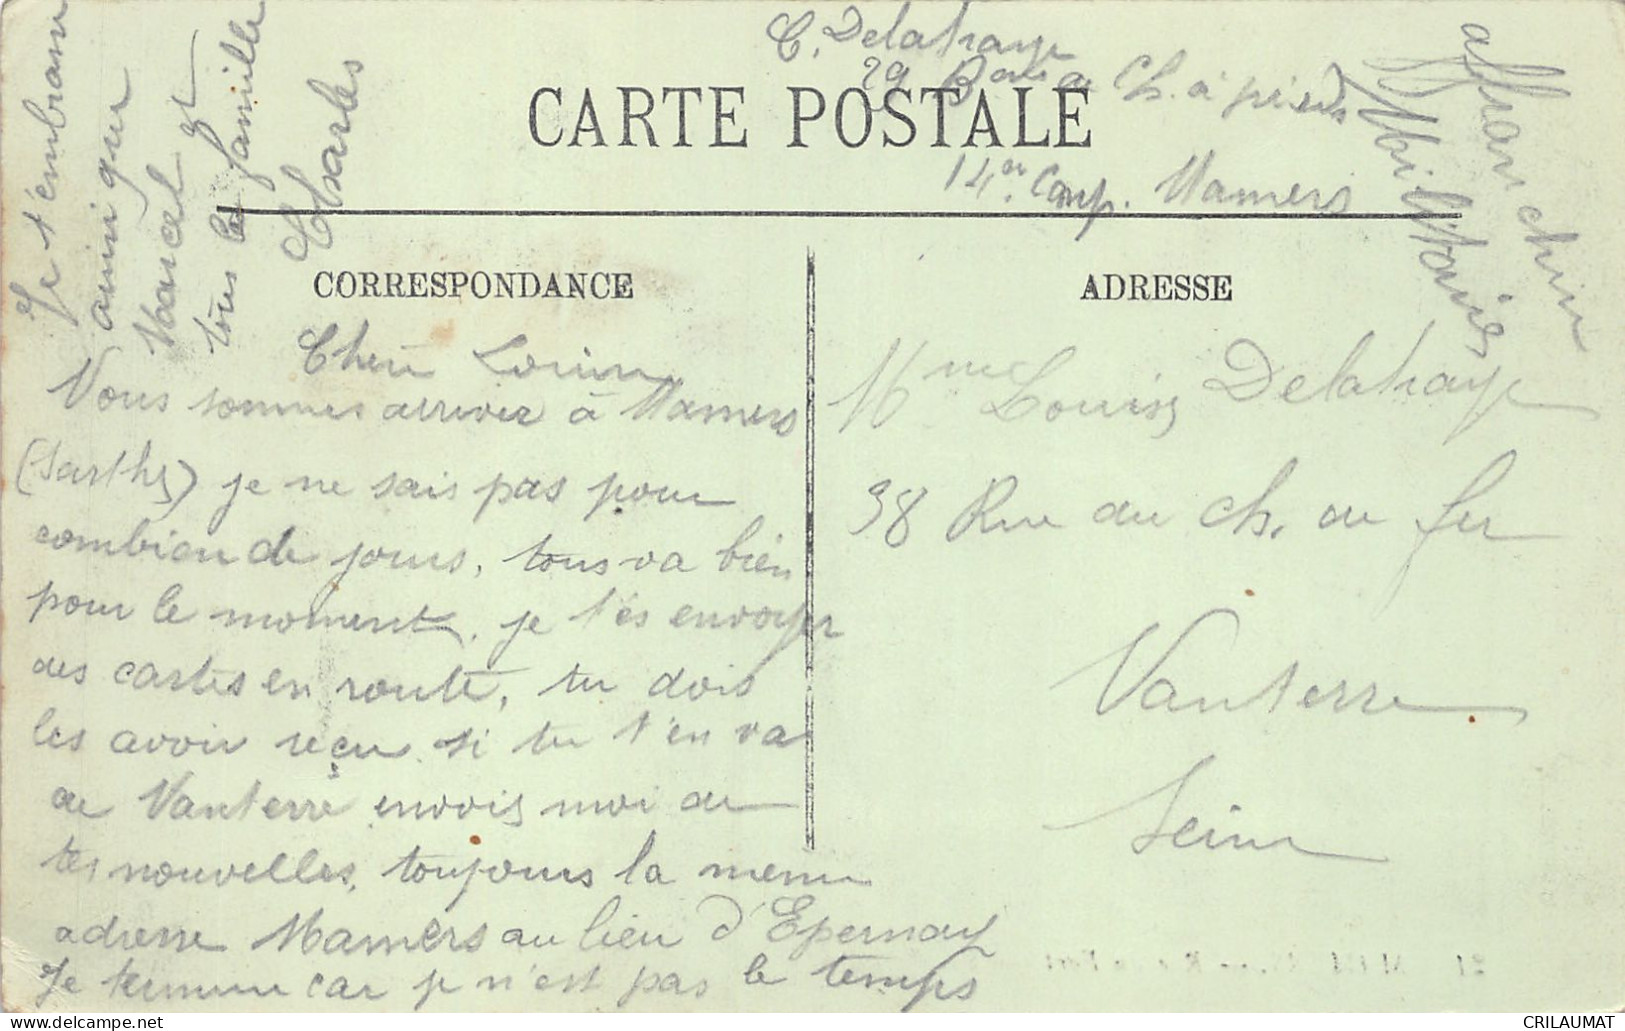 C. Delahaye
29 Bons de Ch. à pieds
CARTE POSTALE
14er Comp. Mamers
affranchi
Militaire
Je t'embrasse
ainsi que
Marcel et
tous la famille
Charles
CORRESPONDANCE
ADRESSE
Cheri
Vous sommes arriver à Mamers
(Sarthe) je ne sais pas pour
combien de jours, tous va bien
pour le moment, je t'és envoyer
des cartes en route, tu dois
les avoir reçu si tu t'en va
de Nanterre envois moi de
tes nouvelles, toujours la meme
adresse Mamers au lieu d'Epernay
Je termine car je n'est pas le temps
Mme Louis Delahaye
38 Rue du ch. de fer
Nanterre
Seine
CRILAUMAT